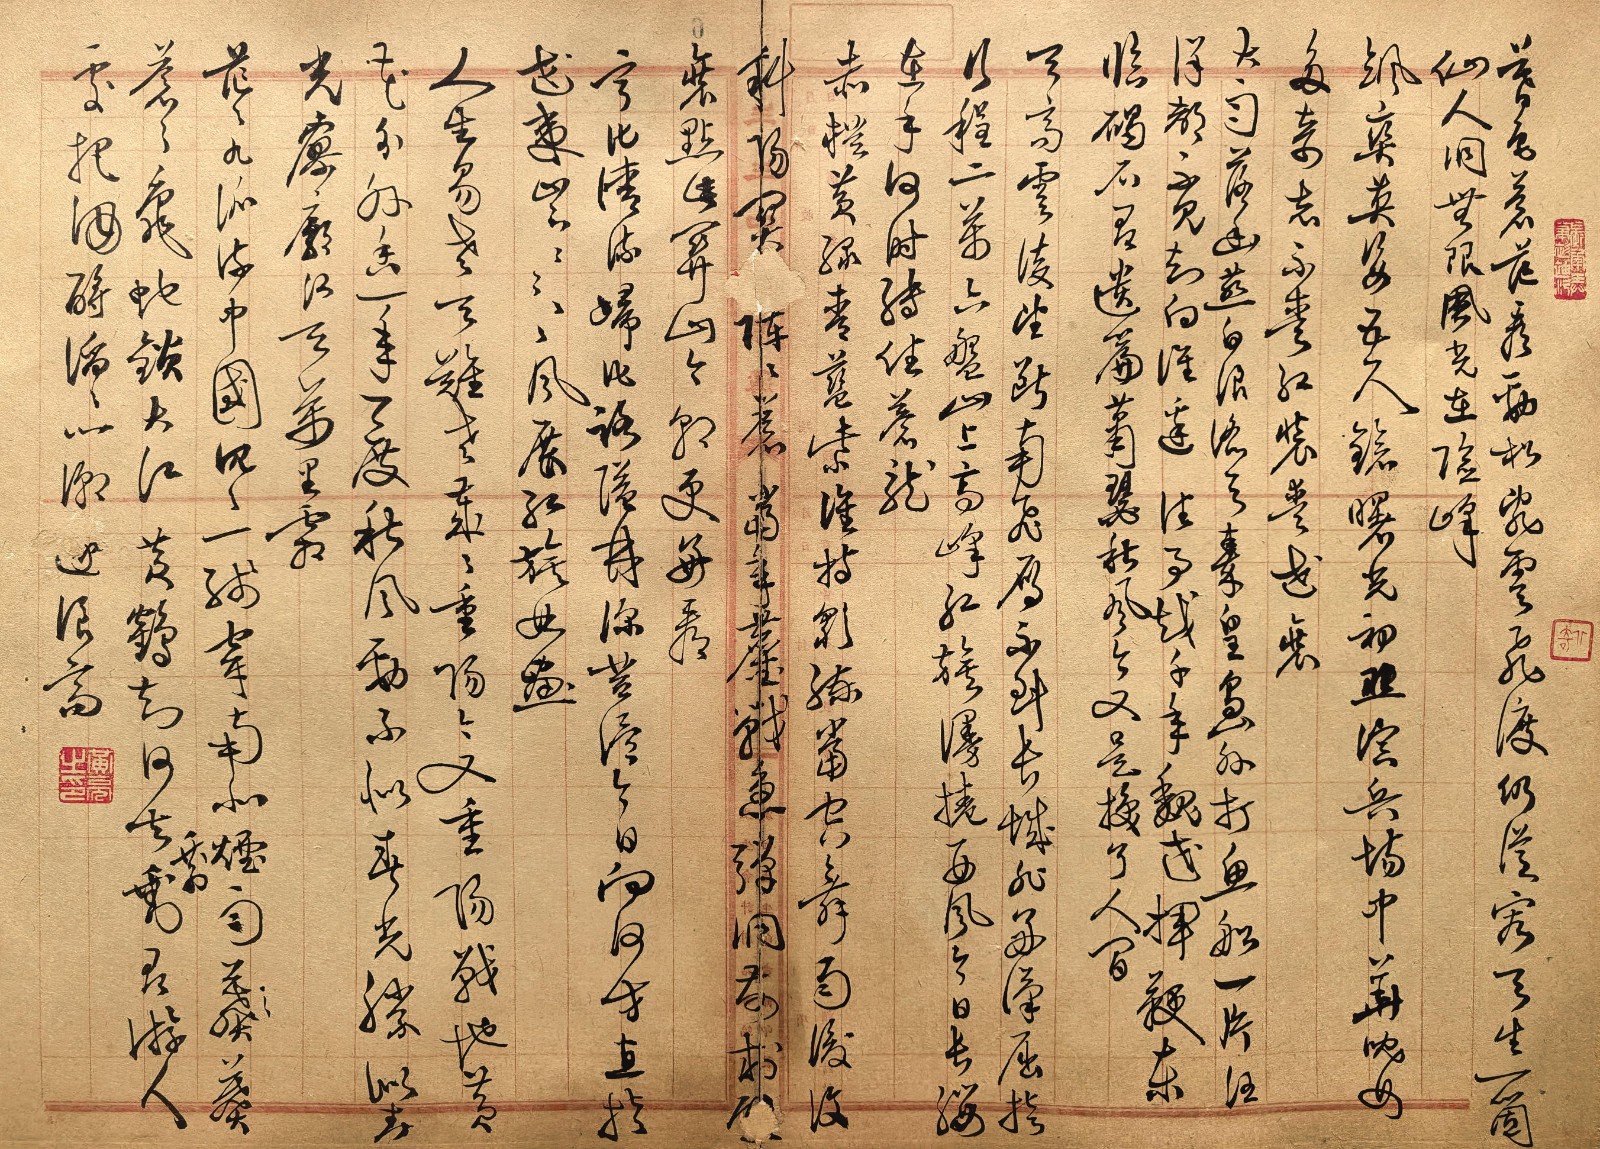 暮色蒼茫看勁松亂雲飛渡仍從容天生一箇
仙人洞無限風光在險峰
颯爽英姿五尺鎗曙光初照演兵場中華兒女
多奇志不愛紅裝愛武裝
大雨落幽燕白浪滔天秦皇島外打魚船一片汪
洋都不見知向誰邊 往事越千年魏武揮鞭東
臨碣石有遺篇蕭瑟秋風今又是換了人間
天高雲淡望斷南飛雁不到長城非好漢屈指
行程二萬六盤山上高峰紅旗漫捲西風今日長纓
在手何時縛住蒼龍
赤橙黃綠青藍紫誰持彩練當空舞雨後復
斜陽關 陣々蒼 當年鏖戰急彈洞前村壁
裝點此關山今朝更好看
寧化清流歸化路隘林深苔滑今日向何方直指
武夷山下々々々風展紅旗如畫
人生易老天難老歲々重陽今又重陽戰地黃
花分外香一年一度秋風勁不似春光勝似春
光寥廓江天萬里霜
茫々九派流中國沉々一線穿南北煙雨莽
蒼々龜蛇鎖大江 黃鶴知何去剩有遊人
處把酒酹滔々心潮逐浪高